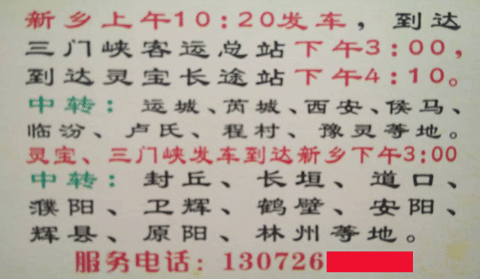 新乡上午10:20发车，到达
三门峡客运总站下午3:00，
到达灵宝长途站下午4:10。
中转：运城、芮城、西安、侯马、
临汾、卢氏、程村、豫灵等地。
灵宝、三门峡发车到达新乡下午3:00
中转：封丘、长垣、道口、
濮阳、卫辉、鹤壁、安阳、
辉县、原阳、林州等地。
服务电话：130726